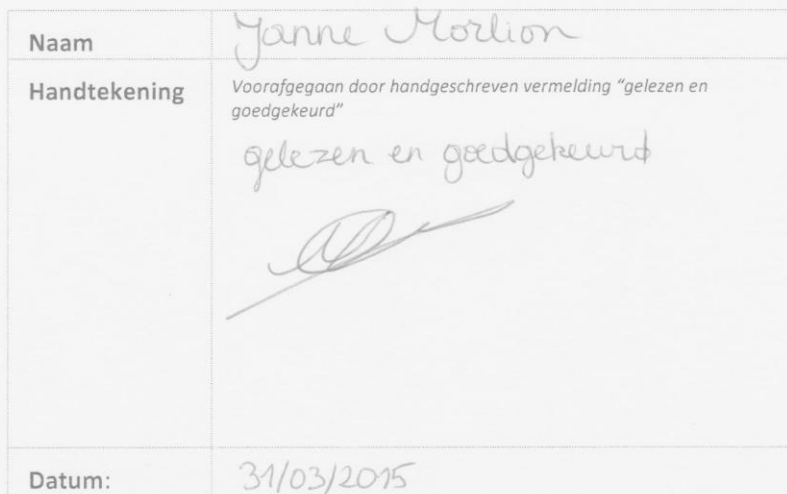 Naam Yanne Morlion
Handtekening Voorafgegaan door handgeschreven vermelding “gelezen en
goedgekeurd”
gelezen en goedgekeurd
Datum: 31/03/2015